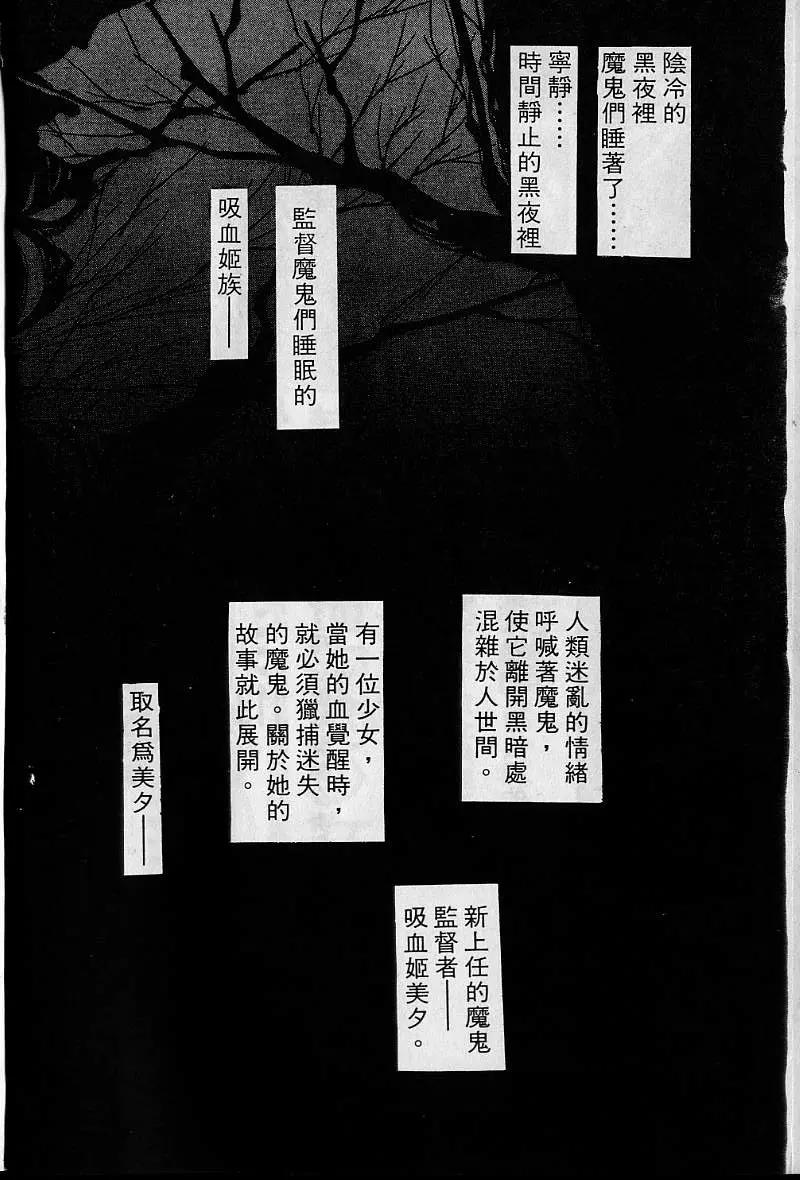 陰冷的
黑夜裡
魔鬼們睡著了……
寧靜……
時間靜止的黑夜裡
監督魔鬼們睡眠的
吸血姬族——
人類迷亂的情緒
呼喊著魔鬼，
使它離開黑暗處
混雜於人世間。
有一位少女，
當她的血覺醒時，
就必須獵捕迷失
的魔鬼。關於她的
故事就此展開。
取名爲美夕——
新上任的魔鬼
監督者——
吸血姬美夕。